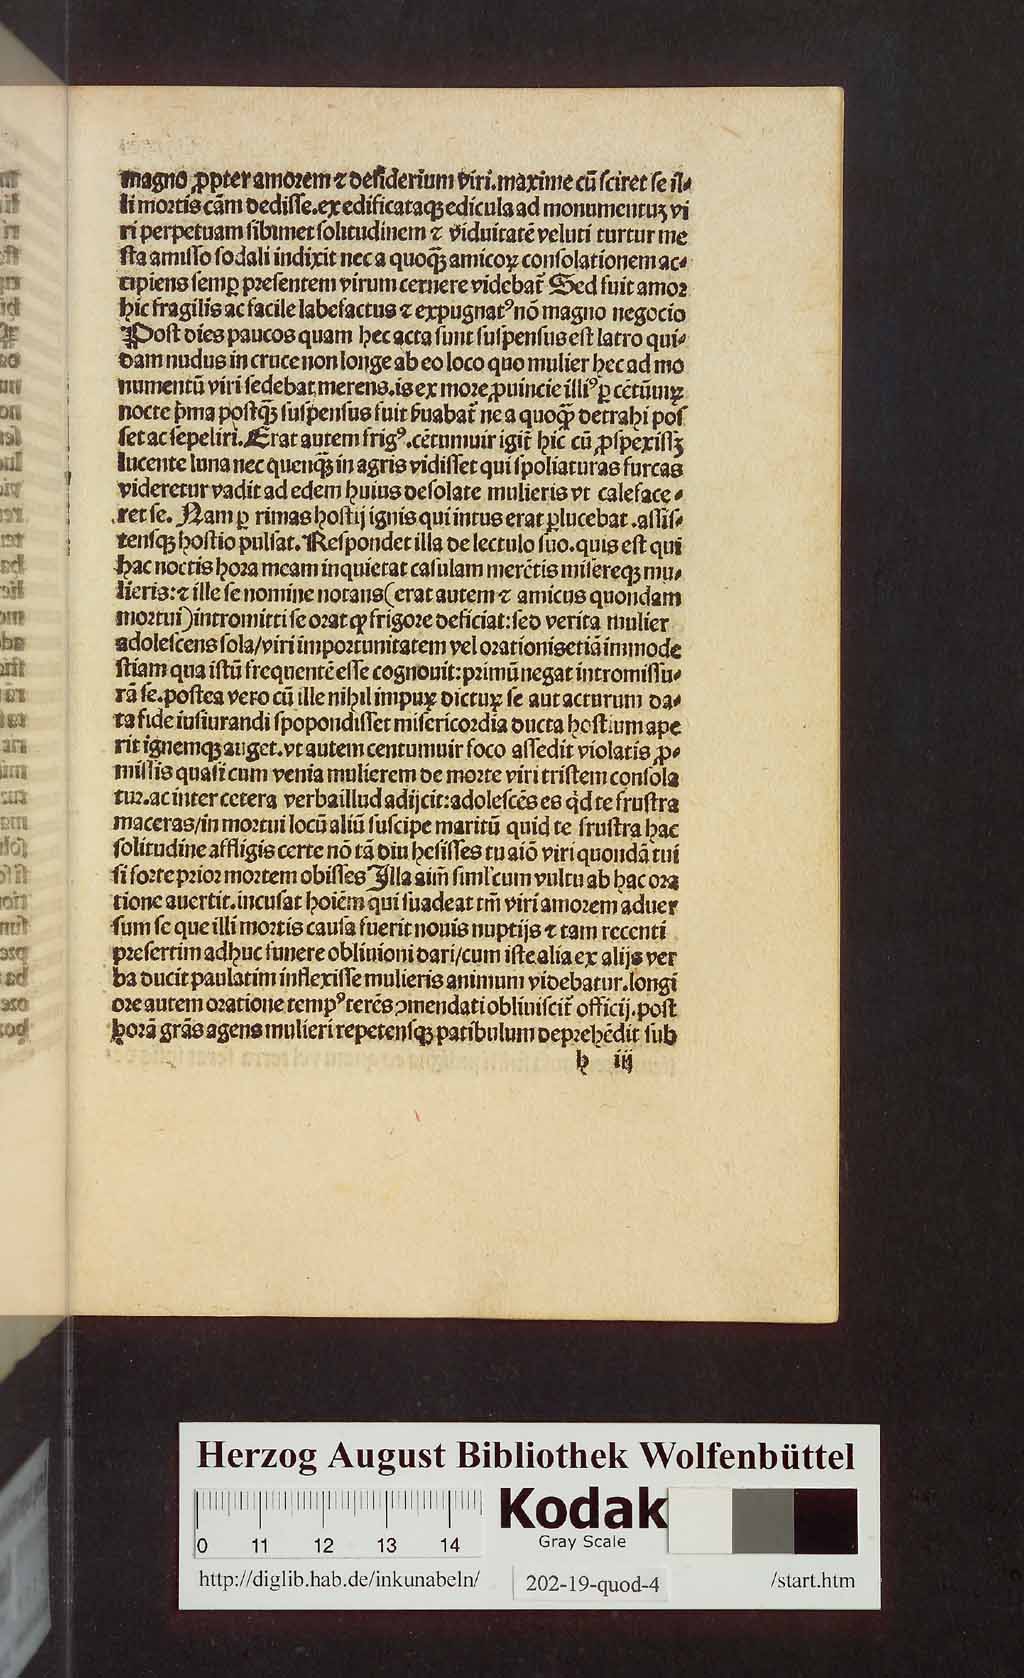 magno ꝓpter amorem ⁊ desiderium viri. maxime cū sciret se il-
li mortis cām dedisse. ex edificataqꝫ edicula ad monumentuꝫ vi
ri perpetuam sibimet solitudinem ⁊ viduitatē veluti turtur me
sta amisso sodali indixit nec a quoqꝫ̄ amicoꝝ consolationem ac-
cipiens semꝑ presentem virum cernere videbat̄ Sed fuit amor
hic fragilis ac facile labefactus ⁊ expugnatꝰ nō magno negocio
Post dies paucos quam hec acta sunt suspensus est latro qui-
dam nudus in cruce non longe ab eo loco quo mulier hec ad mo
numentū viri sedebat merens. is ex more ꝓuincie illiꝰ ꝑ cētūuiꝝ
nocte p̄ma postqꝫ̄ suspensus fuit ẜuabat̄ ne a quoqꝫ̄ detrahi pos
set ac sepeliri. Erat autem frigꝰ. cētumuir igit̄ hic cū ꝓspexissꝫ
lucente luna nec quenqꝫ̄ in agris vidisset qui spoliaturas furcas
videretur vadit ad edem huius desolate mulieris vt caleface-
ret se. Nam ꝑ rimas hostij ignis qui intus erat ꝑlucebat. assis-
tensqꝫ hostio pulsat. Respondet illa de lectulo suo. quis est qui
hac noctis hora meam inquietat casulam merētis misereqꝫ mu-
lieris: ⁊ ille se nomine notans (erat autem ⁊ amicus quondam
mortui) intromitti se orat ꝙ frigore deficiat: sed verita mulier
adolescens sola/ viri importunitatem vel orationis etiā immode
stiam qua istū frequentē esse cognouit: primū negat intromissu-
rā se. postea vero cū ille nihil impuꝝ dictuꝝ se aut acturum da-
ta fide iusiurandi spopondisset misericordia ducta hostium ape
rit ignemqꝫ auget. vt autem centumuir foco assedit violatis ꝓ-
missis quasi cum venia mulierem de morte viri tristem consola
tur. ac inter cetera verba illud adijcit: adolescēs es qͥd te frustra
maceras/ in mortui locū aliū suscipe maritū quid te frustra hac
solitudine affligis certe nō tā diu hesisses tu aiō viri quondā tui
si forte prior mortem obisses Illa aim̄ siml̕ cum vultu ab hac ora
tione auertit. incusat hoiēm qui suadeat tm̄ viri amorem aduer
sum se que illi mortis causa fuerit nouis nuptijs ⁊ tam recenti
presertim adhuc funere obliuioni dari/ cum iste alia ex alijs ver
ba ducit paulatim inflexisse mulieris animum videbatur. longi
ore autem oratione tempꝰ terēs ↄmendati obliuiscit̄ officij. post
horā grās agens mulieri repetensqꝫ patibulum deprehēdit sub
h iij
Herzog August Bibliothek Wolfenbüttel
0 11 12 13 14
Kodak
Gray Scale
http://diglib.hab.de/inkunabeln/ 202-19-quod-4 /start.htm